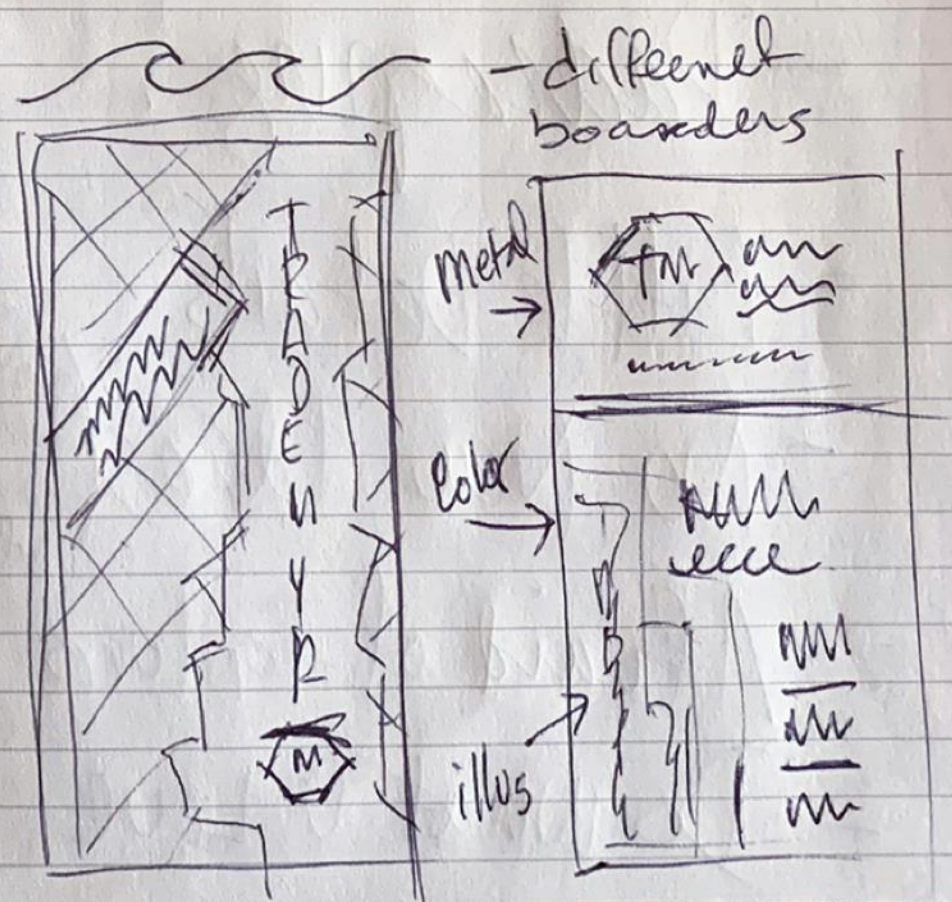 - differenet
boarders
T
R
A
D
E
N
Y
R
M
metal
TM
Color
illus